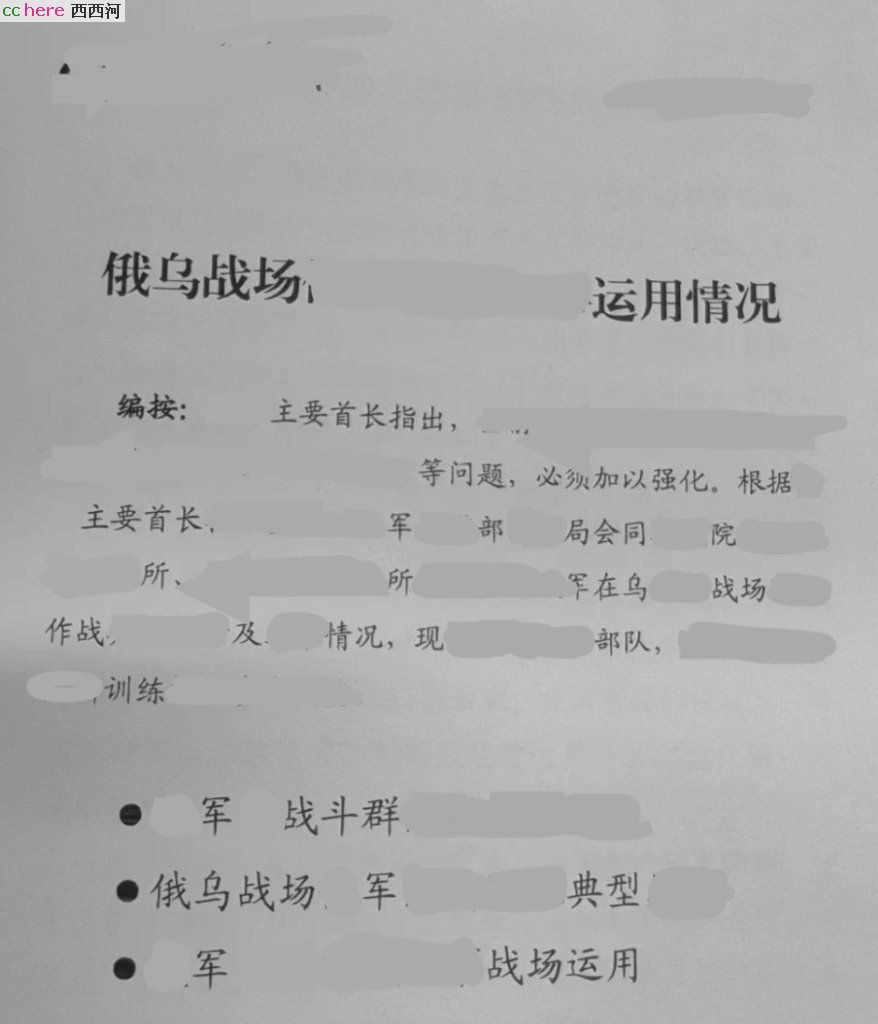 cchere 西西河
俄乌战场 运用情况
编按： 主要首长指出，
等问题，必须加以强化。根据
主要首长 军 部 局会同 院
所、 所 军在乌 战场
作战 及 情况，现 部队，
训练
● 军 战斗群
● 俄乌战场 军 典型
● 军 战场运用